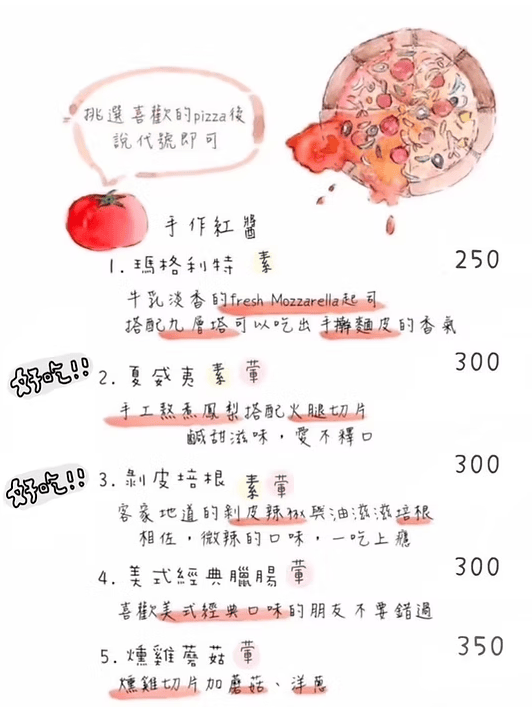 挑選喜歡的pizza後
說代號即可
手作紅醬
1. 瑪格利特 素 250
牛乳淡香的fresh Mozzarella起司
搭配九層塔可以吃出手擀麵皮的香氣
好吃!! 2. 夏威夷 素 葷 300
手工熬煮鳳梨搭配火腿切片
鹹甜滋味，愛不釋口
好吃!! 3. 剝皮培根 素 葷 300
客家地道的剝皮辣椒與油滋滋培根
相佐，微辣的口味，一吃上癮
4. 美式經典臘腸 葷 300
喜歡美式經典口味的朋友不要錯過
5. 燻雞蘑菇 葷 350
燻雞切片加蘑菇、洋蔥